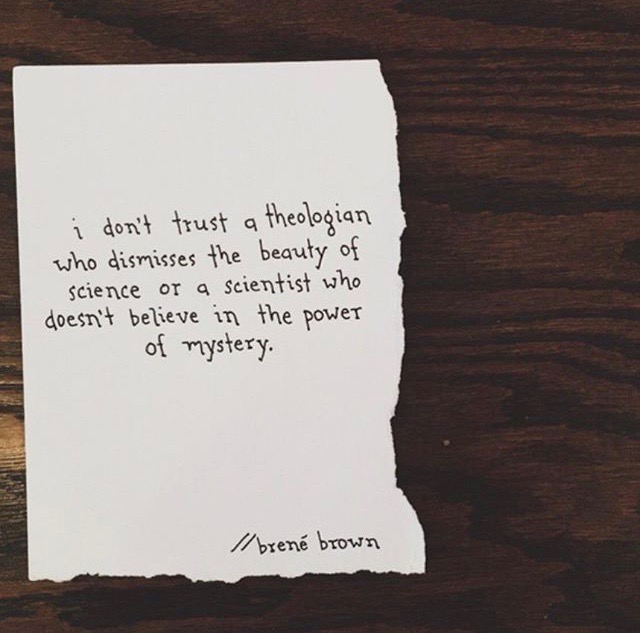 i don't trust a theologian
who dismisses the beauty of
science or a scientist who
doesn't believe in the power
of mystery.
//brené brown